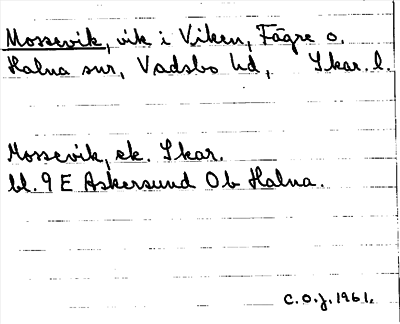 Mossevik, vik i Viken, Fägre o.
Halna snr, Vadsbo hd, Skar. l.
Mossevik, ek. Skar.
bl. 9 E Askersund Ob Halna.
C.O.J. 1961.